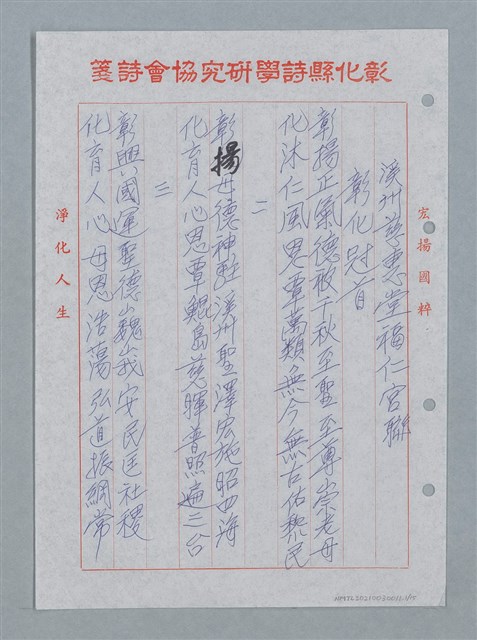 彰化縣詩學研究協會詩箋
宏揚國粹
溪州慈惠堂福仁宮聯
彰化冠首
彰揚正氣德教千秋至聖至尊崇老母
化沐仁風恩覃萬類無今無古佑黎民
二
彰揚母德神駐溪州聖澤宏施昭四海
化育人心恩覃鯤島慈暉普照遍三台
三
彰興國運聖德巍峩安民匡社稷
化育人心母恩浩蕩弘道振綱常
淨化人生